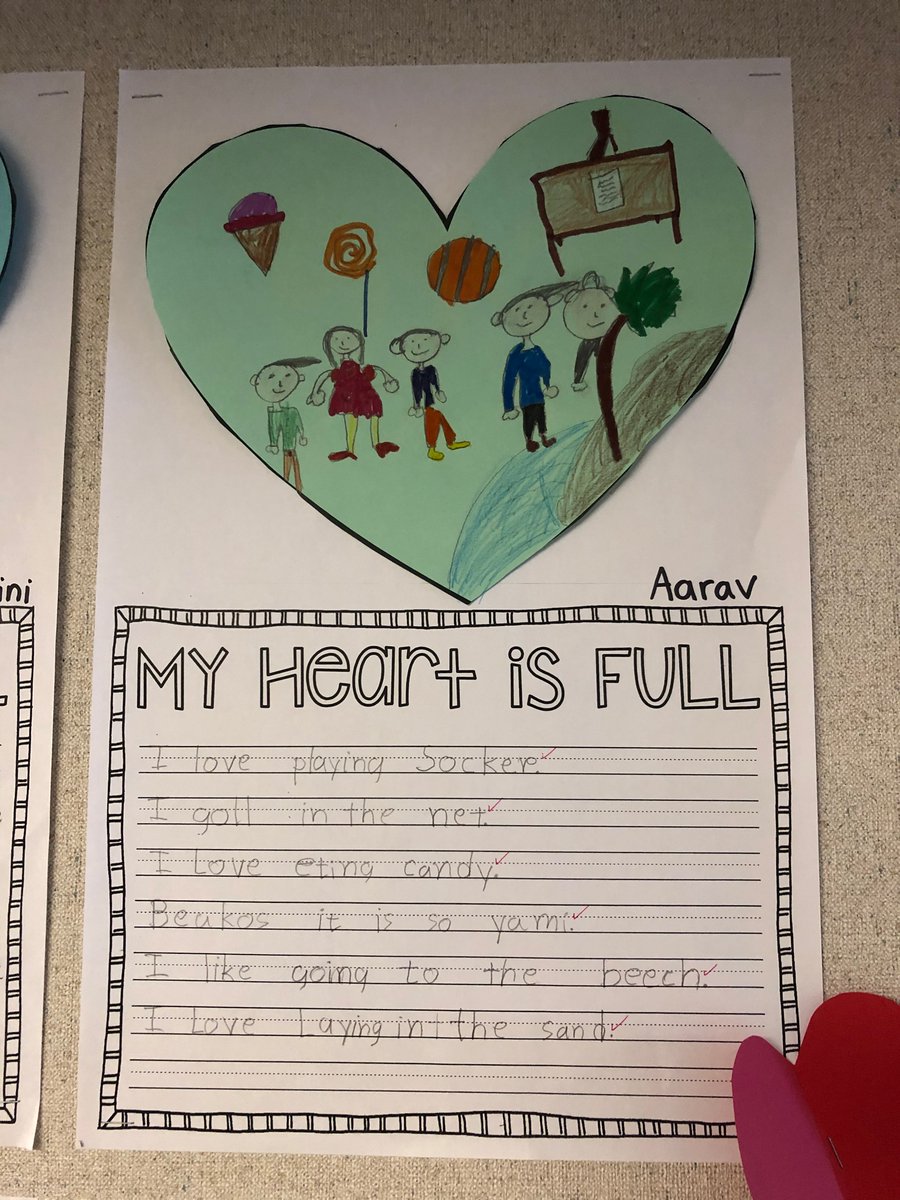 Aarav
ini
MY Heart iS FULL
I love playing Socker.
I goll in the net.
I Love eting candy.
Beakos it is so yami.
I like going to the beech.
I Love Laying in the sand.